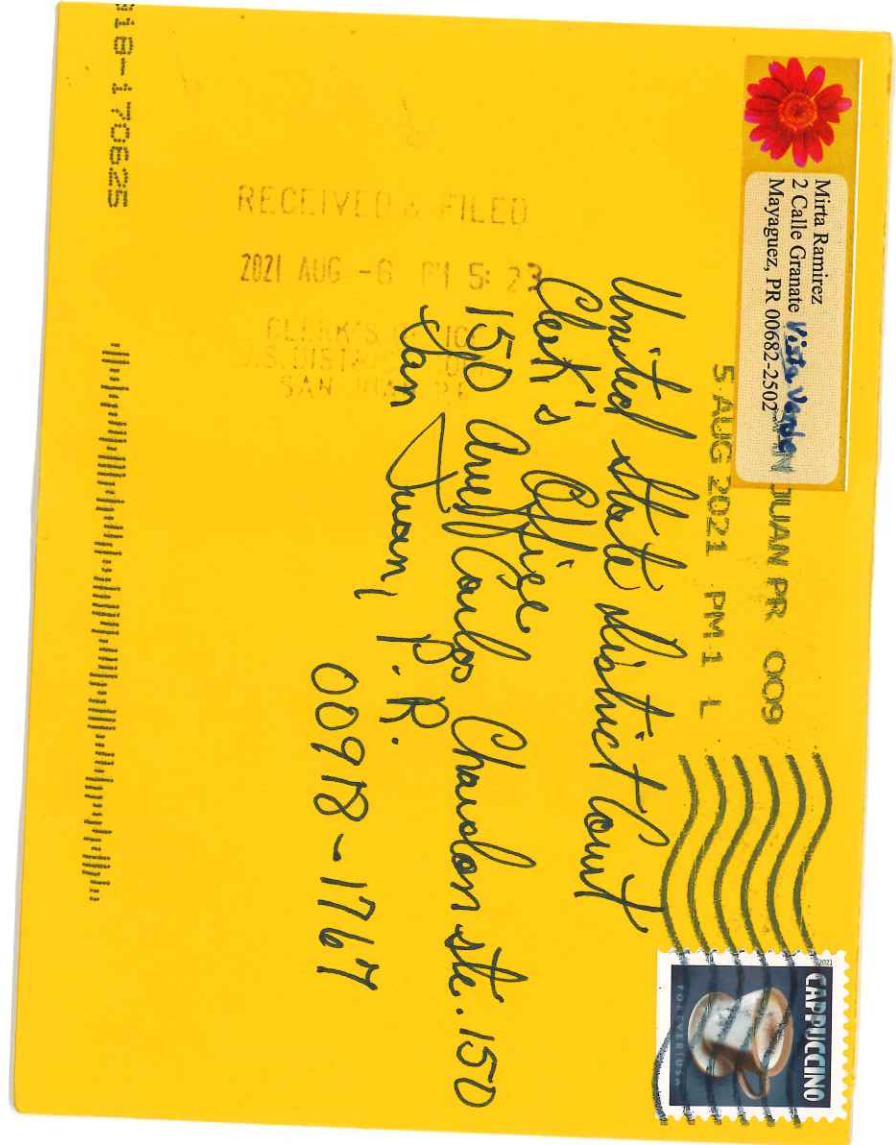 Mirta Ramirez
2 Calle Granate Vista Verde
Mayaguez, PR 00682-2502
JUAN PR 009
5 AUG 2021 PM 1 L
CAPPUCCINO
FOREVER USA
2021
United State District Court
Clerk's Office
150 Ave Carlos Chardon ste. 150
San Juan, P.R.
00918-1767
RECEIVED & FILED
2021 AUG -6 PM 5:23
CLERK'S
U.S. DIST
SAN
918-170625